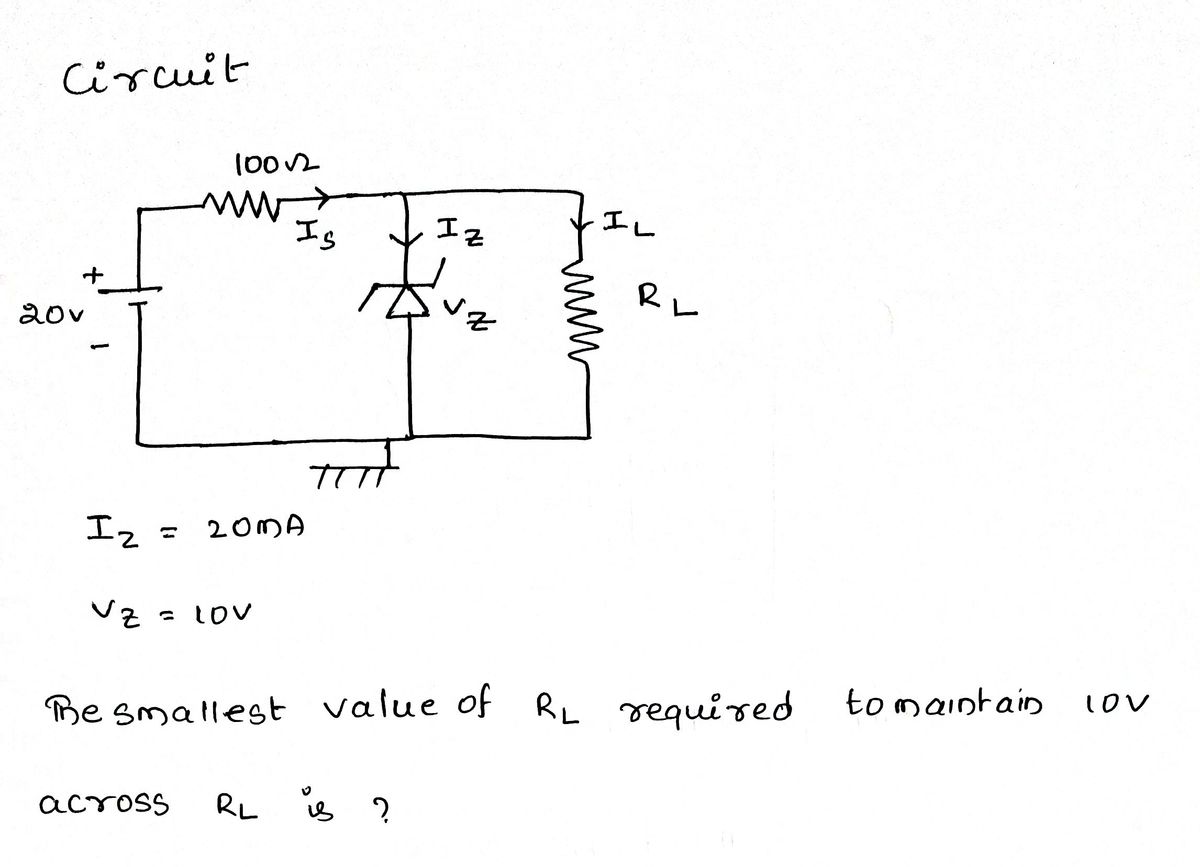 Circuit
100Ω
Is
Iz
IL
+
20v
-
Vz
RL
Iz = 20mA
Vz = 10V
The smallest value of RL required to maintain 10V
across RL is ?